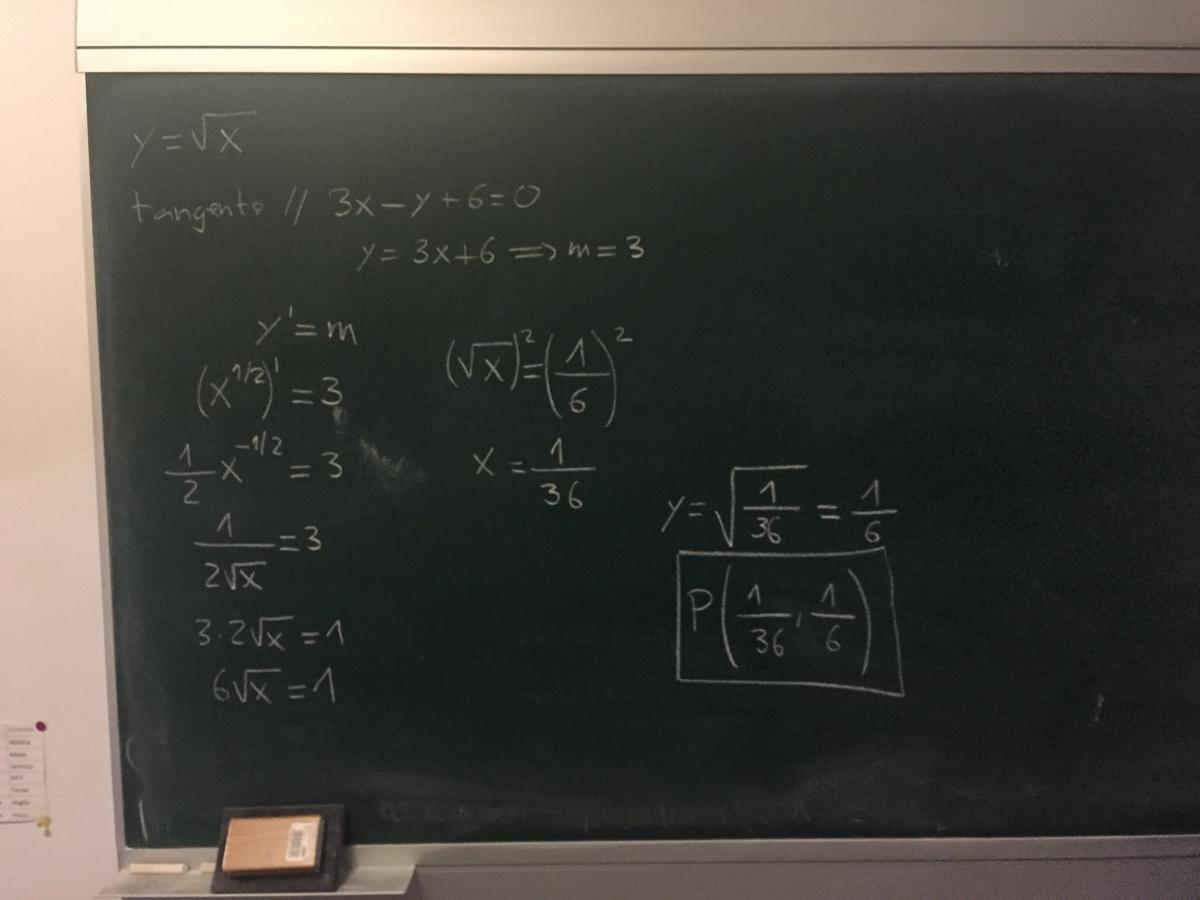 y = √x
tangente // 3x − y + 6 = 0
y = 3x + 6 ⇒ m = 3
y' = m
(x^1/2)' = 3
1/2 x^−1/2 = 3
1/(2√x) = 3
3·2√x = 1
6√x = 1
(√x)² = (1/6)²
x = 1/36
y = √(1/36) = 1/6
P(1/36, 1/6)